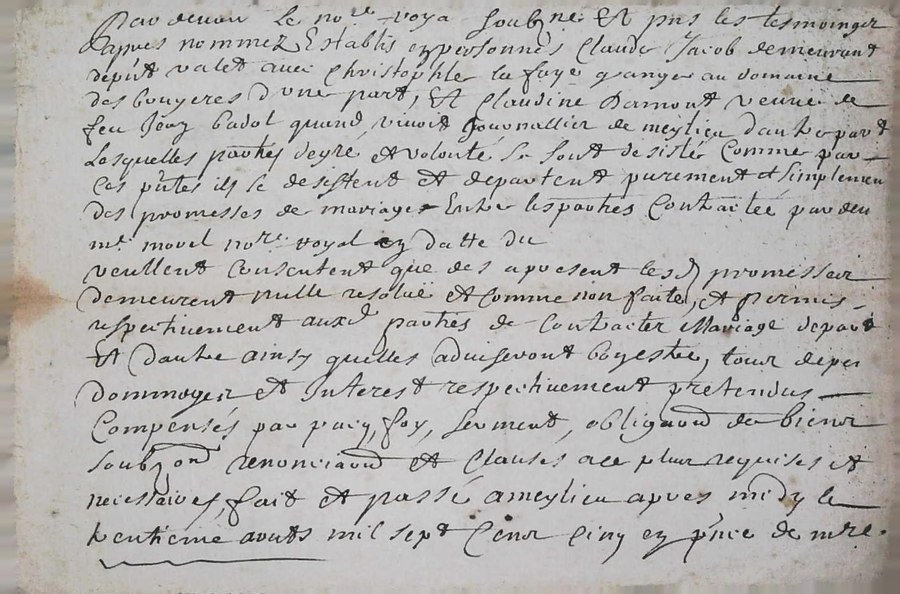 Par devant Le no.re royal soubz.ne Et pns les tesmoingz
apres nommez Establis en personnes Claude Jacob demeurant
dep.nt valet avec Christophle la faye granger au domaine
des bouyeres d'une part, Et Claudine Damont veuve de
feu Jean badol quand vivoit Journallier de meylieu d'autre part
Lesquelles parties de gre et volonté se sont desisté Comme par
Ces p.ntes ils se desistent et departent purement et simplemen
des promesses de mariage Entre les parties Contractée par dev
m.e morel no.re royal en datte du
veullent consentent que des apresent lesd promesses
demeurent nulle resolue et comme non faite, et permis
respectivement auxd parties de Contracter Mariage de part
Et d'autre ainsy quelles adviseront bon estre, tous depens
dommages et Interest respectivement pretendus
Compensés par pacq, foy, serment, obligaon de biens
soubzon renonciaon et Clauses a ce plus requises et
necessaires, fait et passé a meylieu apres midy le
trentieme aouts mil sept Cens Cinq en p.nce de m.re